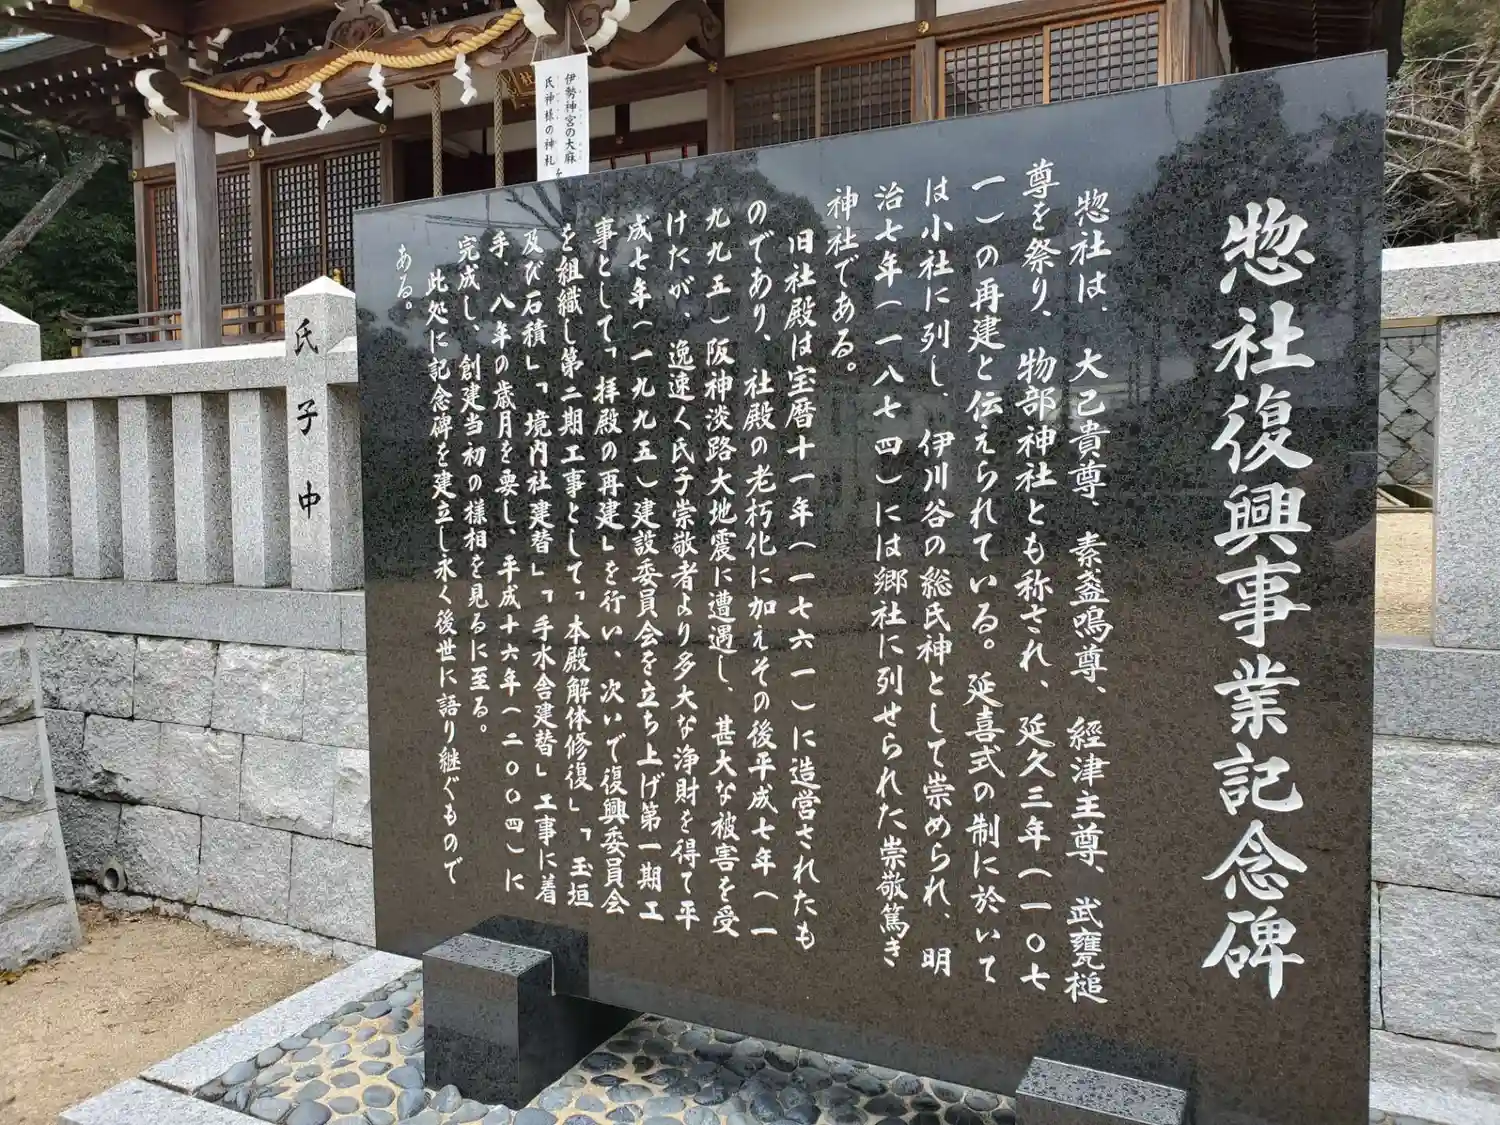 惣社復興事業記念碑
惣社は、大己貴尊、素盞嗚尊、經津主尊、武甕槌
尊を祭り、物部神社とも称され、延久三年(一〇七
一)の再建と伝えられている。延喜式の制に於いて
は小社に列し、伊川谷の総氏神として崇められ、明
治七年(一八七四)には郷社に列せられた崇敬篤き
神社である。
旧社殿は宝暦十一年(一七六一)に造営されたも
のであり、社殿の老朽化に加えその後平成七年(一
九九五)阪神淡路大地震に遭遇し、甚大な被害を受
けたが、逸速く氏子崇敬者より多大な浄財を得て平
成七年(一九九五)建設委員会を立ち上げ第一期工
事として「拝殿の再建」を行い、次いで復興委員会
を組織し第二期工事として「本殿解体修復」「玉垣
及び石積」「境内社建替」「手水舎建替」工事に着
手、八年の歳月を要し、平成十六年(二〇〇四)に
完成し、創建当初の様相を見るに至る。
此処に記念碑を建立し永く後世に語り継ぐもので
ある。
伊勢神宮の大麻
氏神様の神札
氏子中